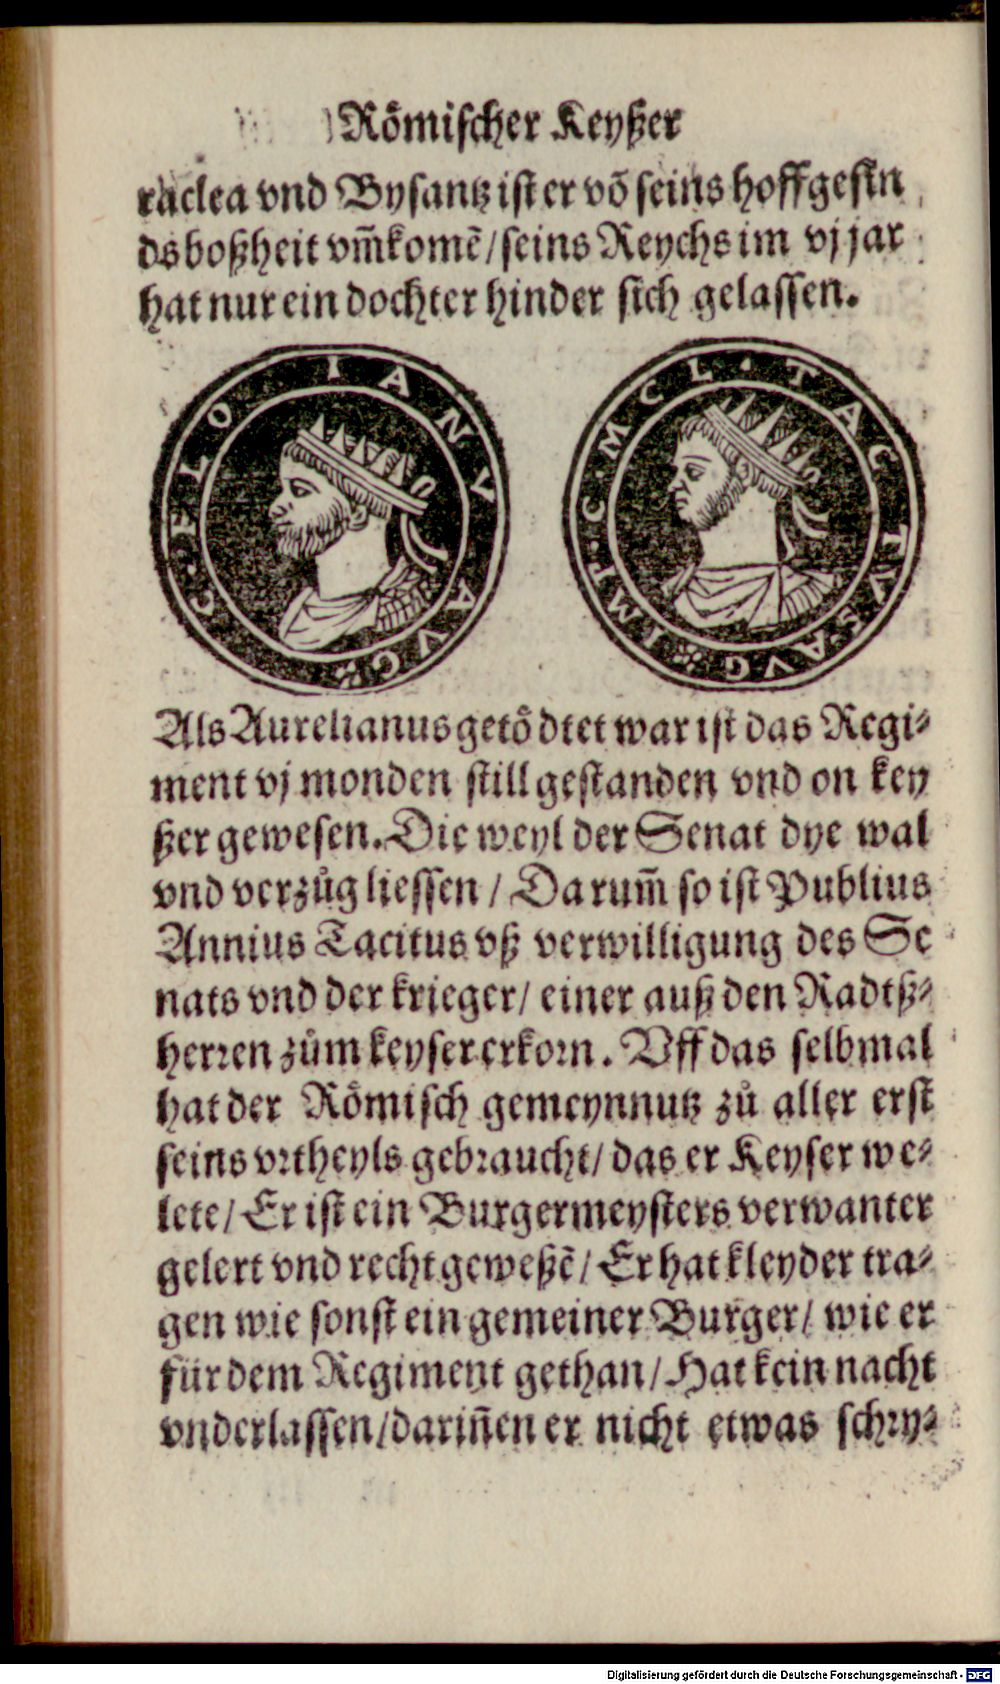 Römischer Keyßer
raclea vnd Bysantz ist er vō seins hoffgesin
ds boßheit vm̃komē/ seins Reychs im vj jar
hat nur ein dochter hinder sich gelassen.
C · FLO · IANV AVG
IMP · C · MCL · TACTVS AVG
Als Aurelianus getödtet war ist das Regi⸗
ment vj monden still gestanden vnd on key
ßer gewesen. Die weyl der Senat dye wal
vnd verzůg liessen / Darum̃ so ist Publius
Annius Tacitus vß verwilligung des Se
nats vnd der krieger/ einer auß den Radtß⸗
herren zům keyser erkorn. Vff das selbmal
hat der Römisch gemeynnutz zů aller erst
seins vrtheyls gebraucht/ das er Keyser we⸗
lete/ Er ist ein Burgermeysters verwanter
gelert vnd recht geweßē/ Er hat kleyder tra⸗
gen wie sonst ein gemeiner Burger/ wie er
für dem Regiment gethan/ Hat kein nacht
vnderlassen/ darin̄en er nicht etwas schry⸗
Digitalisierung gefördert durch die Deutsche Forschungsgemeinschaft - DFG